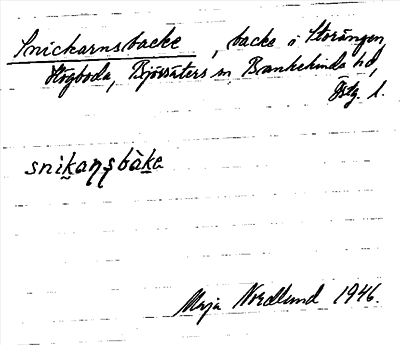 Snickarnsbacke, backe i Storängen,
Högboda, Björsäters sn, Bankekinds hd,
Östg. l.
snikaṇṣbàke
Maja Nordlund 1946.